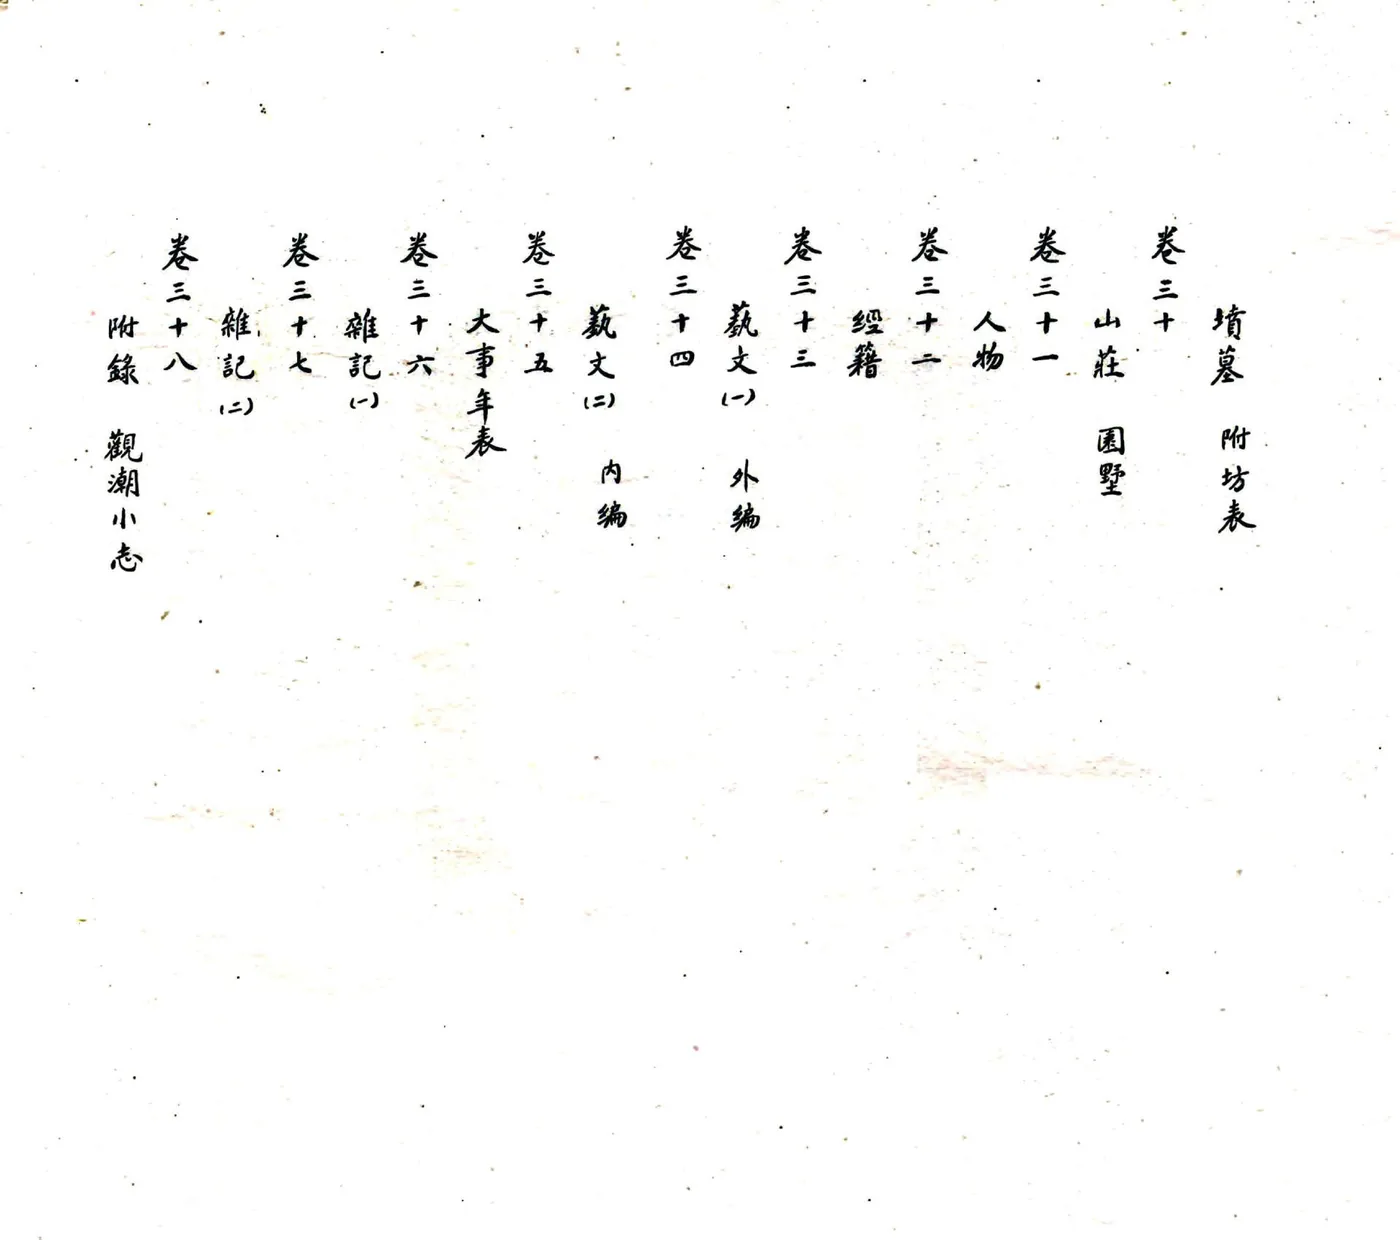 墳墓　附坊表
卷三十
山莊　園墅
卷三十一
人物
卷三十二
經籍
卷三十三
藝文（一）　外編
卷三十四
藝文（二）　内編
卷三十五
大事年表
卷三十六
雜記（一）
卷三十七
雜記（二）
卷三十八
附錄　觀潮小志